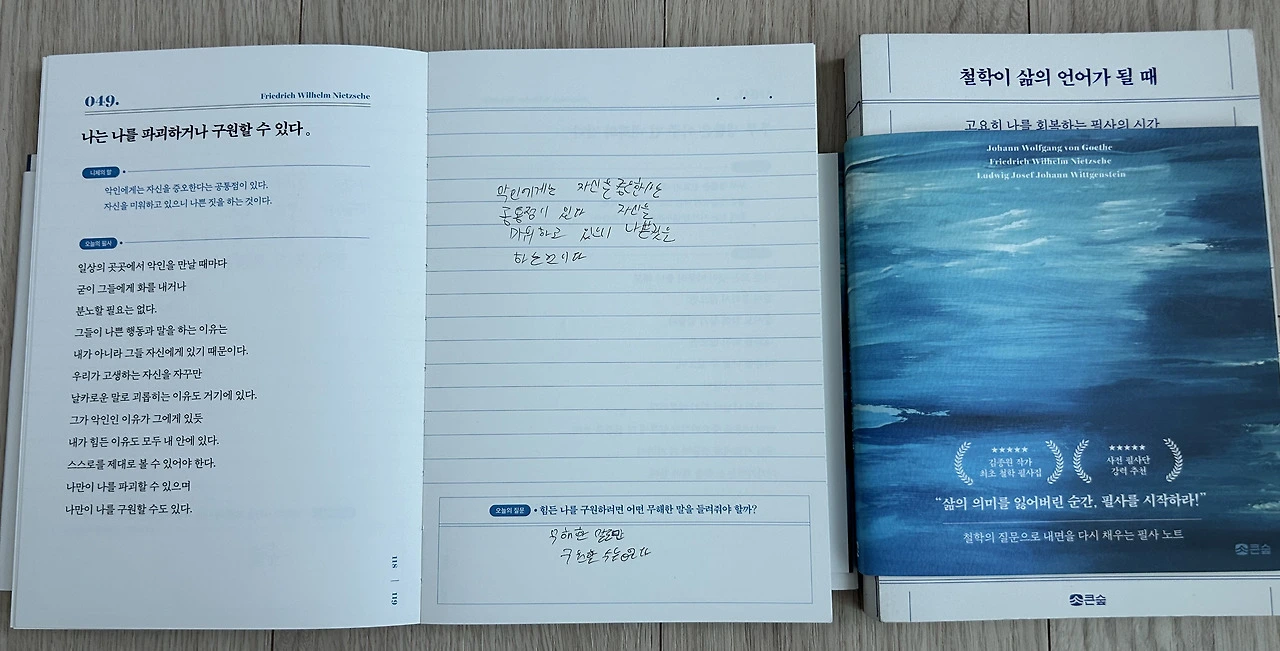 049.
Friedrich Wilhelm Nietzsche
나는 나를 파괴하거나 구원할 수 있다.
니체의 말
악인에게는 자신을 증오한다는 공통점이 있다.
자신을 미워하고 있으니 나쁜 짓을 하는 것이다.
오늘의 필사
일상의 곳곳에서 악인을 만날 때마다
굳이 그들에게 화를 내거나
분노할 필요는 없다.
그들이 나쁜 행동과 말을 하는 이유는
내가 아니라 그들 자신에게 있기 때문이다.
우리가 고생하는 자신을 자꾸만
날카로운 말로 괴롭히는 이유도 거기에 있다.
그가 악인인 이유가 그에게 있듯
내가 힘든 이유도 모두 내 안에 있다.
스스로를 제대로 볼 수 있어야 한다.
나만이 나를 파괴할 수 있으며
나만이 나를 구원할 수도 있다.
118 | 119
악인에게는 자신을
공통점이 있다 자신을
미워하고 있으니 나쁜짓을
하는것이다
오늘의 질문 • 힘든 나를 구원하려면 어떤 무해한 말을 들려줘야 할까?
무해한
구원할 수 있다
철학이 삶의 언어가 될 때
고요히 나를 회복하는 필사의 시간
Johann Wolfgang von Goethe
Friedrich Wilhelm Nietzsche
Ludwig Josef Johann Wittgenstein
★★★★★
김종원 작가
최초 철학 필사집
★★★★★
사전 필사단
강력 추천
“삶의 의미를 잃어버린 순간, 필사를 시작하라!”
철학의 질문으로 내면을 다시 채우는 필사 노트
큰숲
큰숲